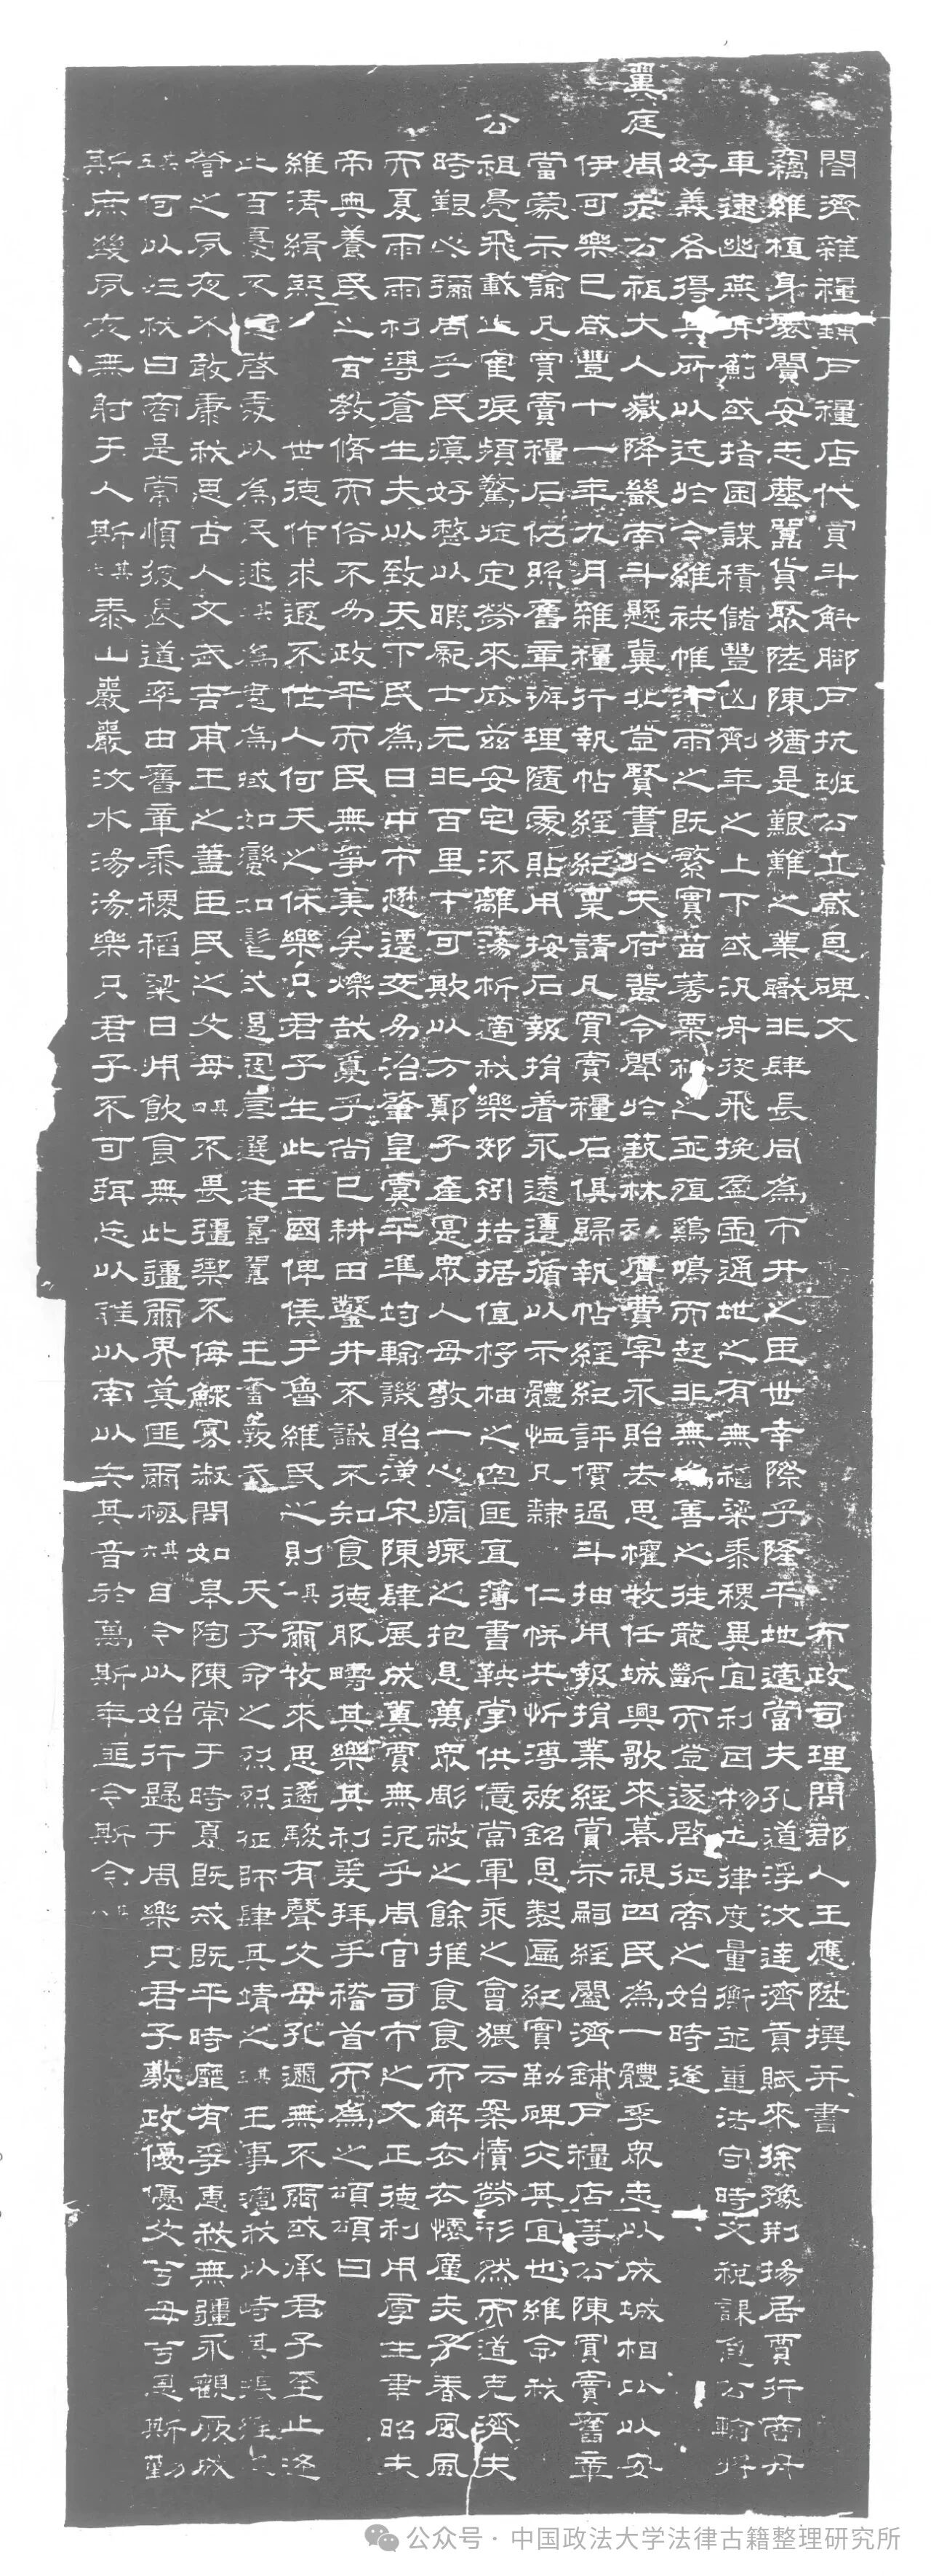 闔濟雜糧鋪戶糧店代買斗斛腳戶抗班公立感恩碑文 布政司理問郡人王應陞撰并書
竊維植身廛闠安志塵囂貨聚陸陳猶是艱難之業職非肆長同為市井之臣世幸際乎隆平地適當夫孔道浮汶達濟貢賦來徐豫荊揚居賈行商舟
車逮幽燕并薊或指囷謀積儲豐凶劑年之上下或汎舟後飛挽盈虛通地之有無稻粱黍稷異宜利因物土律度量衡並重法守時文稅課急公輸將
好義各得其所以迄於今維袂帷汗雨之既繁實苗莠粟秕之並殖雞鳴而起非無為善之徒龍斷而登遂啓征商之始時逢
翼庭周老公祖大人嶽降巖南斗懸冀北登賢書於天府蜚令聞於藝林初膺費宰永貽去思權牧任城興歌來暮視四民為一體孚眾志以成城相以安
伊可樂已咸豐十一年九月雜糧行執帖經紀稟請凡買賣糧石俱歸執帖經紀評價過斗抽用報捐業經賞示嗣經闔濟鋪戶糧店等公陳買賣舊章
當蒙示諭凡買賣糧石仍照舊章班理隨處貼用按石報捐着永遠遵循以示體恤凡隸 仁帡共忻溥被銘恩製匾紀實勒碑交其宜也維令我
公祖鳧飛載止寉淚頻驚綻定勞來広茲安宅添離蕩析適我樂郊矧拮据值杼柚之空匪宜薄書鞅掌供億當軍乘之會猥云案牘勞形然而道克濟夫
時艱心彌周乎民瘼好整以暇龐士元非百里才可欺以方鄭子產寔眾人母敬一心痌瘝之抱息萬眾彫敝之餘推食食而解衣衣懷廑夫子春風風
而夏雨雨杓溥蒼生夫以致天下民為日中市懋遷交易治肇皇虞平準均輸譏貽漢宋陳肆展成奠賈無泥乎周官司市之文正德利用厚生聿昭夫
帝典養民之言教脩而俗不媮政平而民無爭美矣爍哉蔑乎尚已耕田鑿井不識不知食德服疇其樂其利爰拜手稽首而為之頌頌曰
維清緝熙 世德作求遐不作人何天之休樂只君子生此王國俾侯于魯維民之則其一爾牧來思遹駿有聲父母孔邇無不爾或承君子至止逢
此百憂不遑啓處以為民逑其二為君為域如蠻如髦式遏寇虐選徒囂囂 王奮厥武 天子命之烈烈征師肆其靖之其三王事適我以峙其
營之夙夜不敢康我思古人文武吉甫王之藎臣民之父母其四不畏彊禦不侮鰥寡淑問如皋陶陳常于時夏既戒既平時靡有爭惠我無疆永觀厥成
其五何以作我曰商是常順彼長道率由舊章黍稷稻粱日用飲食無此疆爾界莫匪爾極其六自今以始行歸于周樂只君子敷政優優父兮母兮恩斯勤
斯庶幾夙夜無射于人斯其七泰山巖巖汶水湯湯樂只君子不可弭忘以雅以南以矢其音於萬斯年匪今斯今其八
公众号·中国政法大学法律古籍整理研究所